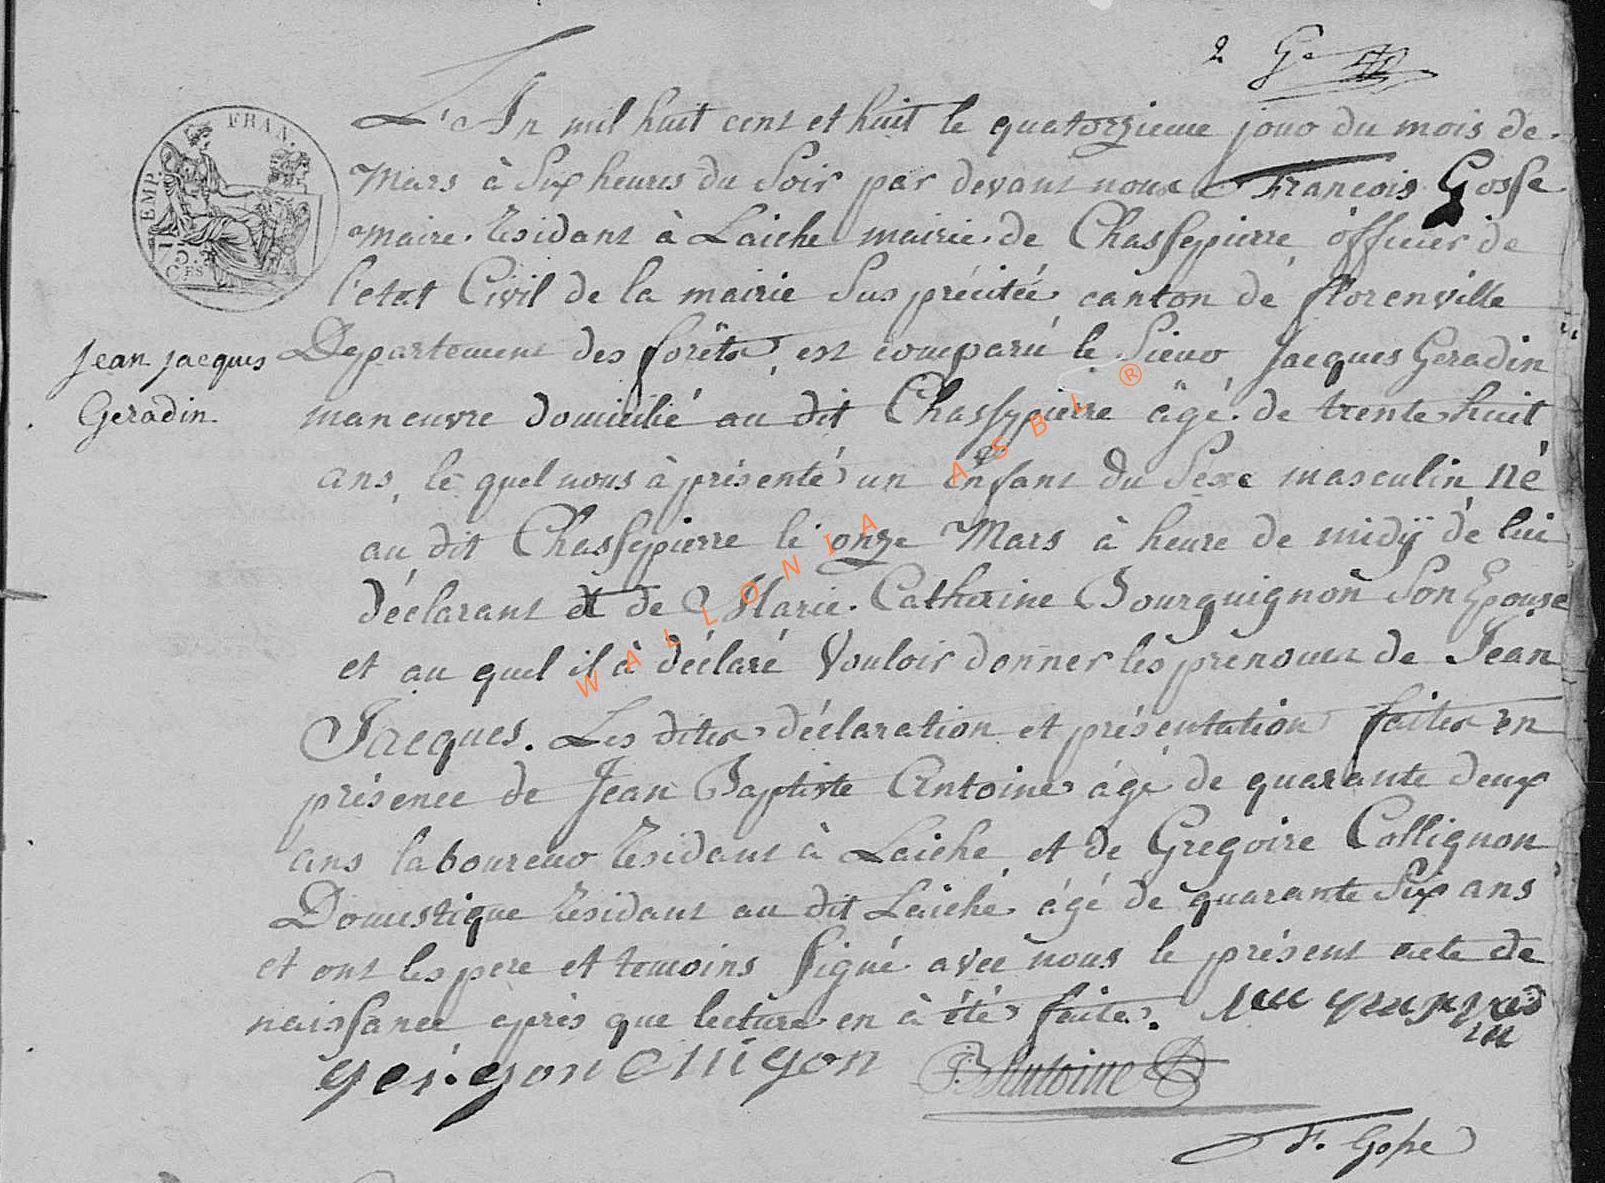 2 Ge
L'An mil huit cent et huit le quatorzieme jour du mois de
Mars à Six heures du Soir par devant nous François Gosse
maire résidant à Laiche mairie de Chassepierre officier de
l'etat Civil de la mairie Sus précitée canton de florenville
Departement des forêts, est comparu le Sieur Jacques Geradin
jean jacques
Geradin
manœuvre domicilié au dit Chassepierre âgé de trente huit
ans, le quel nous à présenté un enfant du Sexe masculin né
au dit Chassepierre le onze Mars à heure de midÿ de lui
déclarant et de Marie Catherine Bourguignon Son Epouse
et au quel il à déclaré Vouloir donner les prenoms de Jean
Jacques. Les dites déclaration et présentation faites en
présence de Jean Baptiste Antoine âgé de quarante deux
ans laboureur résidant à Laiche et de Gregoire Collignon
Domestique résidant au dit Laiche âgé de quarante Six ans
et ont les pere et temoins signé avec nous le présent acte de
naissance après que lecture en à été faite.
JB Antoine
F. Gosse
EMP. FRAN.
75.
CES
WALLONIA ASBL ®